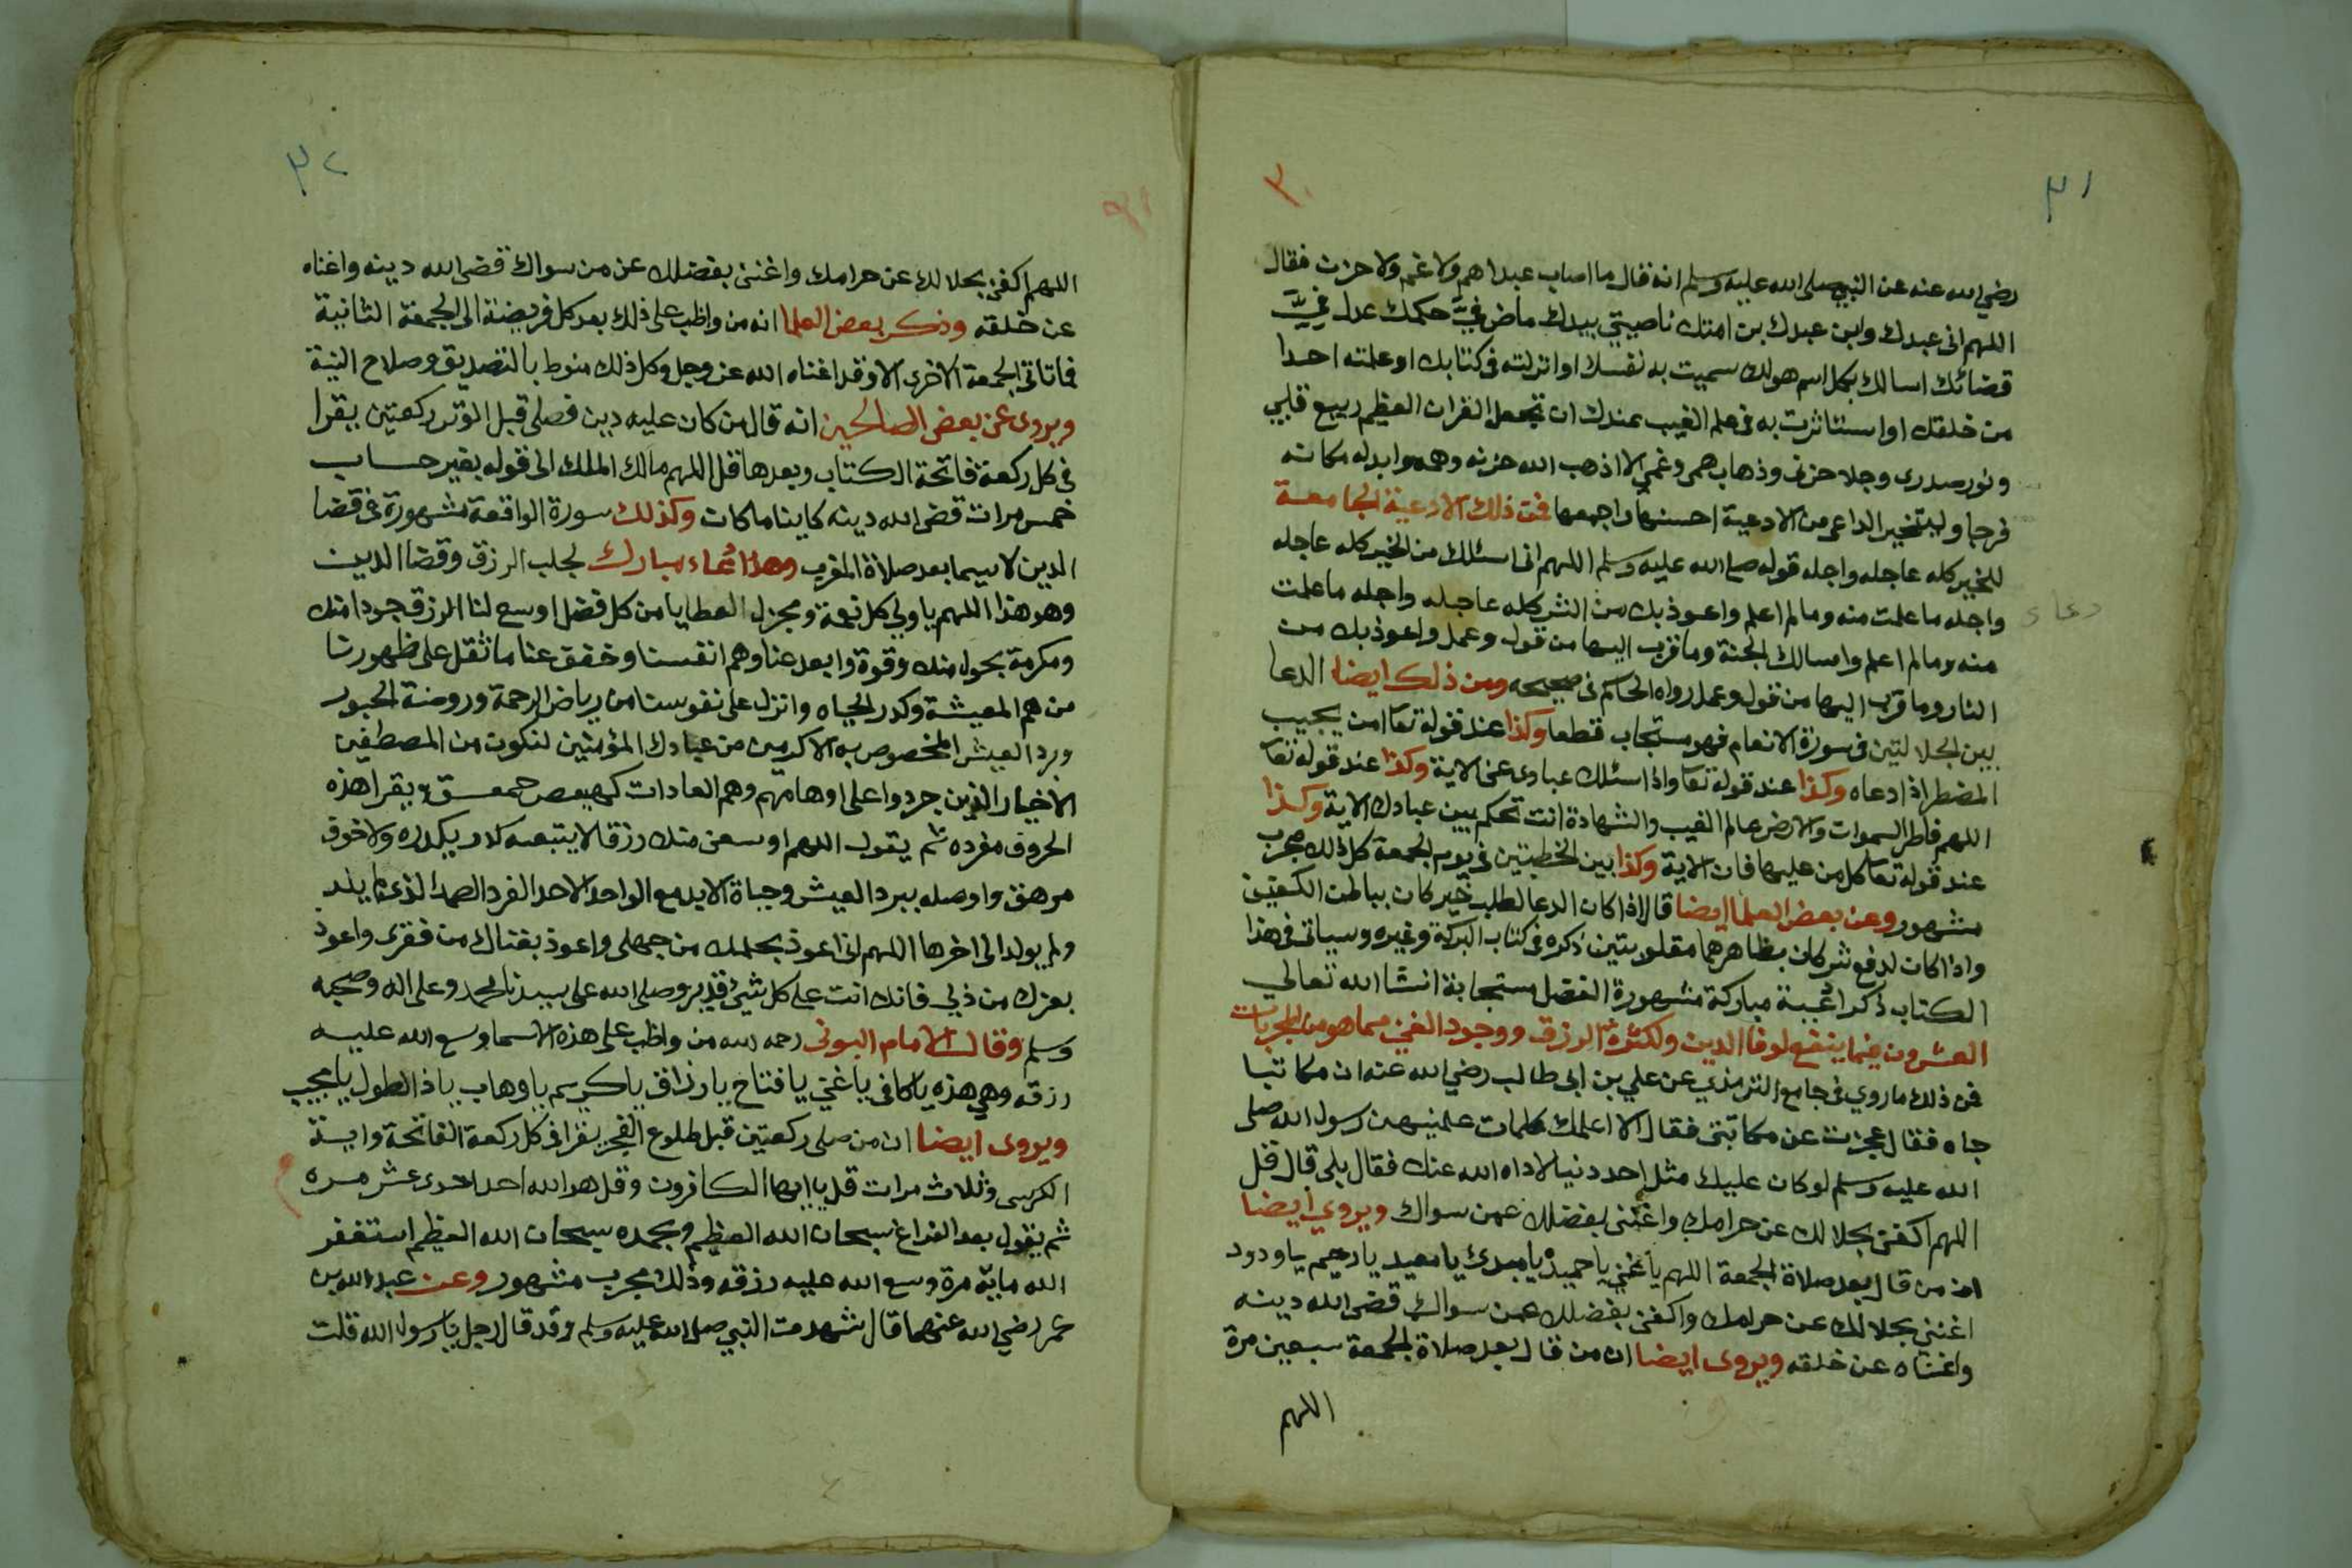 ٣١
٣٠
رضي الله عنه عن النبي صلى الله عليه وسلم انه قال ما اصاب عبدا هم ولا غم ولا حزن فقال
اللهم اني عبدك وابن عبدك بن امتك ناصيتي بيدك ماض فيَّ حكمك عدل فيَّ
قضائك اسالك بكل اسم هو لك سميت به نفسك او انزلته في كتابك او علمته احدا
من خلقك او استاثرت به في علم الغيب عندك ان تجعل القران العظيم ربيع قلبي
ونور صدري وجلا حزني وذهاب همي وغمي الا اذهب الله حزنه وهمه وابدله مكانه
فرجا وليتخير الداعي من الادعية احسنها واجمعها فمن ذلك الادعية الجامعة
للخير كله عاجله واجله قوله صلى الله عليه وسلم اللهم اني اسئلك من الخير كله عاجله
واجله ما علمت منه وما لم اعلم واعوذ بك من الشر كله عاجله واجله ما علمت
دعاء
منه وما لم اعلم واسالك الجنة وما قرب اليها من قول وعمل واعوذ بك من
النار وما قرب اليها من قول وعمل رواه الحاكم في صحيحه ومن ذلك ايضا الدعا
بين الجلالتين في سورة الانعام فهو مستجاب قطعا وكذا عند قوله تعا امن يجيب
المضطر اذا دعاه وكذا عند قوله تعا واذا سئلك عبادي عني الاية وكذا عند قوله تعا
اللهم فاطر السموات والارض عالم الغيب والشهادة انت تحكم بين عبادك الاية وكذا
عند قوله تعا كل من عليها فان الاية وكذا بين الخطبتين في يوم الجمعة كل ذلك مجرب
مشهور وعن بعض العلما ايضا قال اذا كان الدعا لطلب خير كان بباطن الكفين
واذا كان لدفع شر كان بظاهرهما مقلوبتين ذكره في كتاب البركة وغيره وسياتي في هذا
الكتاب ذكر ادعية مباركة مشهورة الفضل مستجابة انشا الله تعالي
العشرون فيما ينفع لوفا الدين ولكثرة الرزق ووجود الغني مما هو من المجربات
فمن ذلك ما روي في جامع الترمذي عن علي بن ابي طالب رضي الله عنه ان مكاتبا
جاه فقال عجزت عن مكاتبتي فقال الا اعلمك كلمات علمنيهن رسول الله صلى
الله عليه وسلم لو كان عليك مثل احد دنيا لاداه الله عنك فقال بلي قال قل
اللهم اكفني بحلالك عن حرامك واغنني بفضلك عمن سواك ويروي ايضا
ان من قال بعد صلاة الجمعة اللهم يا غني يا حميد يا مبدئ يا معيد يا رحيم يا ودود
اغنني بحلالك عن حرامك واكفني بفضلك عمن سواك قضى الله دينه
واغناه عن خلقه ويروى ايضا ان من قال بعد صلاة الجمعة سبعين مرة
اللهم
٣٢
٣١
اللهم اكفني بحلالك عن حرامك واغنني بفضلك عن من سواك قضى الله دينه واغناه
عن خلقه وذكر بعض العلما انه من واظب على ذلك بعد كل فريضة الى الجمعة الثانية
فما تاتي الجمعة الاخرى الا وقد اغناه الله عز وجل وكل ذلك منوط بالتصديق وصلاح النية
ويروى عن بعض الصالحين انه قال من كان عليه دين فصلى قبل الوتر ركعتين يقرا
في كل ركعة فاتحة الكتاب وبعدها قل اللهم مالك الملك الى قوله بغير حساب
خمس مرات قضى الله دينه كاينا ما كان وكذلك سورة الواقعة مشهورة في قضا
الدين لاسيما بعد صلاة المغرب وهذا دعاء مبارك لجلب الرزق وقضا الدين
وهو هذا اللهم يا ولي كل نعمة ومجزل العطايا من كل فضل اوسع لنا الرزق جودا منك
ومكرمة بحول منك وقوة وابعد عنا وهم انفسنا وخفف عنا ما ثقل على ظهورنا
من هم المعيشة وكدر الحياه وانزل على نفوسنا من رياض الرحمة وروضة الحبور
وبرد العيش المخصوص به الاكرمين من عبادك المؤمنين لنكون من المصطفين
الاخيار الذين جردوا على اوهامهم وهم العادات كهيعص حمعسق يقرا هذه
الحروف مفرده ثم يقول اللهم اوسعني منك رزقا لا يتبعه كدر يكدره ولا خوف
مرهق واوصله ببرد العيش وحياة الابد مع الواحد الاحد الفرد الصمد الذي لم يلد
ولم يولد الى اخرها اللهم اني اعوذ بحلمك من جهلي واعوذ بغناك من فقري واعوذ
بعزك من ذلي فانك انت على كل شيء قدير وصلى الله على سيدنا محمد وعلى اله وصحبه
وسلم وقال الامام البوني رحمه الله من واظب على هذه الاسما وسع الله عليه
رزقه وهي هذه يا كافي يا غني يا فتاح يا رزاق يا كريم يا وهاب يا ذا الطول يا مجيب
ويروى ايضا ان من صلى ركعتين قبل طلوع الفجر يقرا في كل ركعة الفاتحة واية
الكرسى وثلاث مرات قل يا ايها الكافرون وقل هو الله احد احدى عشر مره
ثم يقول بعد الفراغ سبحان الله العظيم وبحمده سبحان الله العظيم استغفر
الله ماية مرة وسع الله عليه رزقه وذلك مجرب مشهور وعن عبد الله بن
عمر رضي الله عنهما قال شهدت النبي صلى الله عليه وسلم وقد قال رجل يا رسول الله قلت